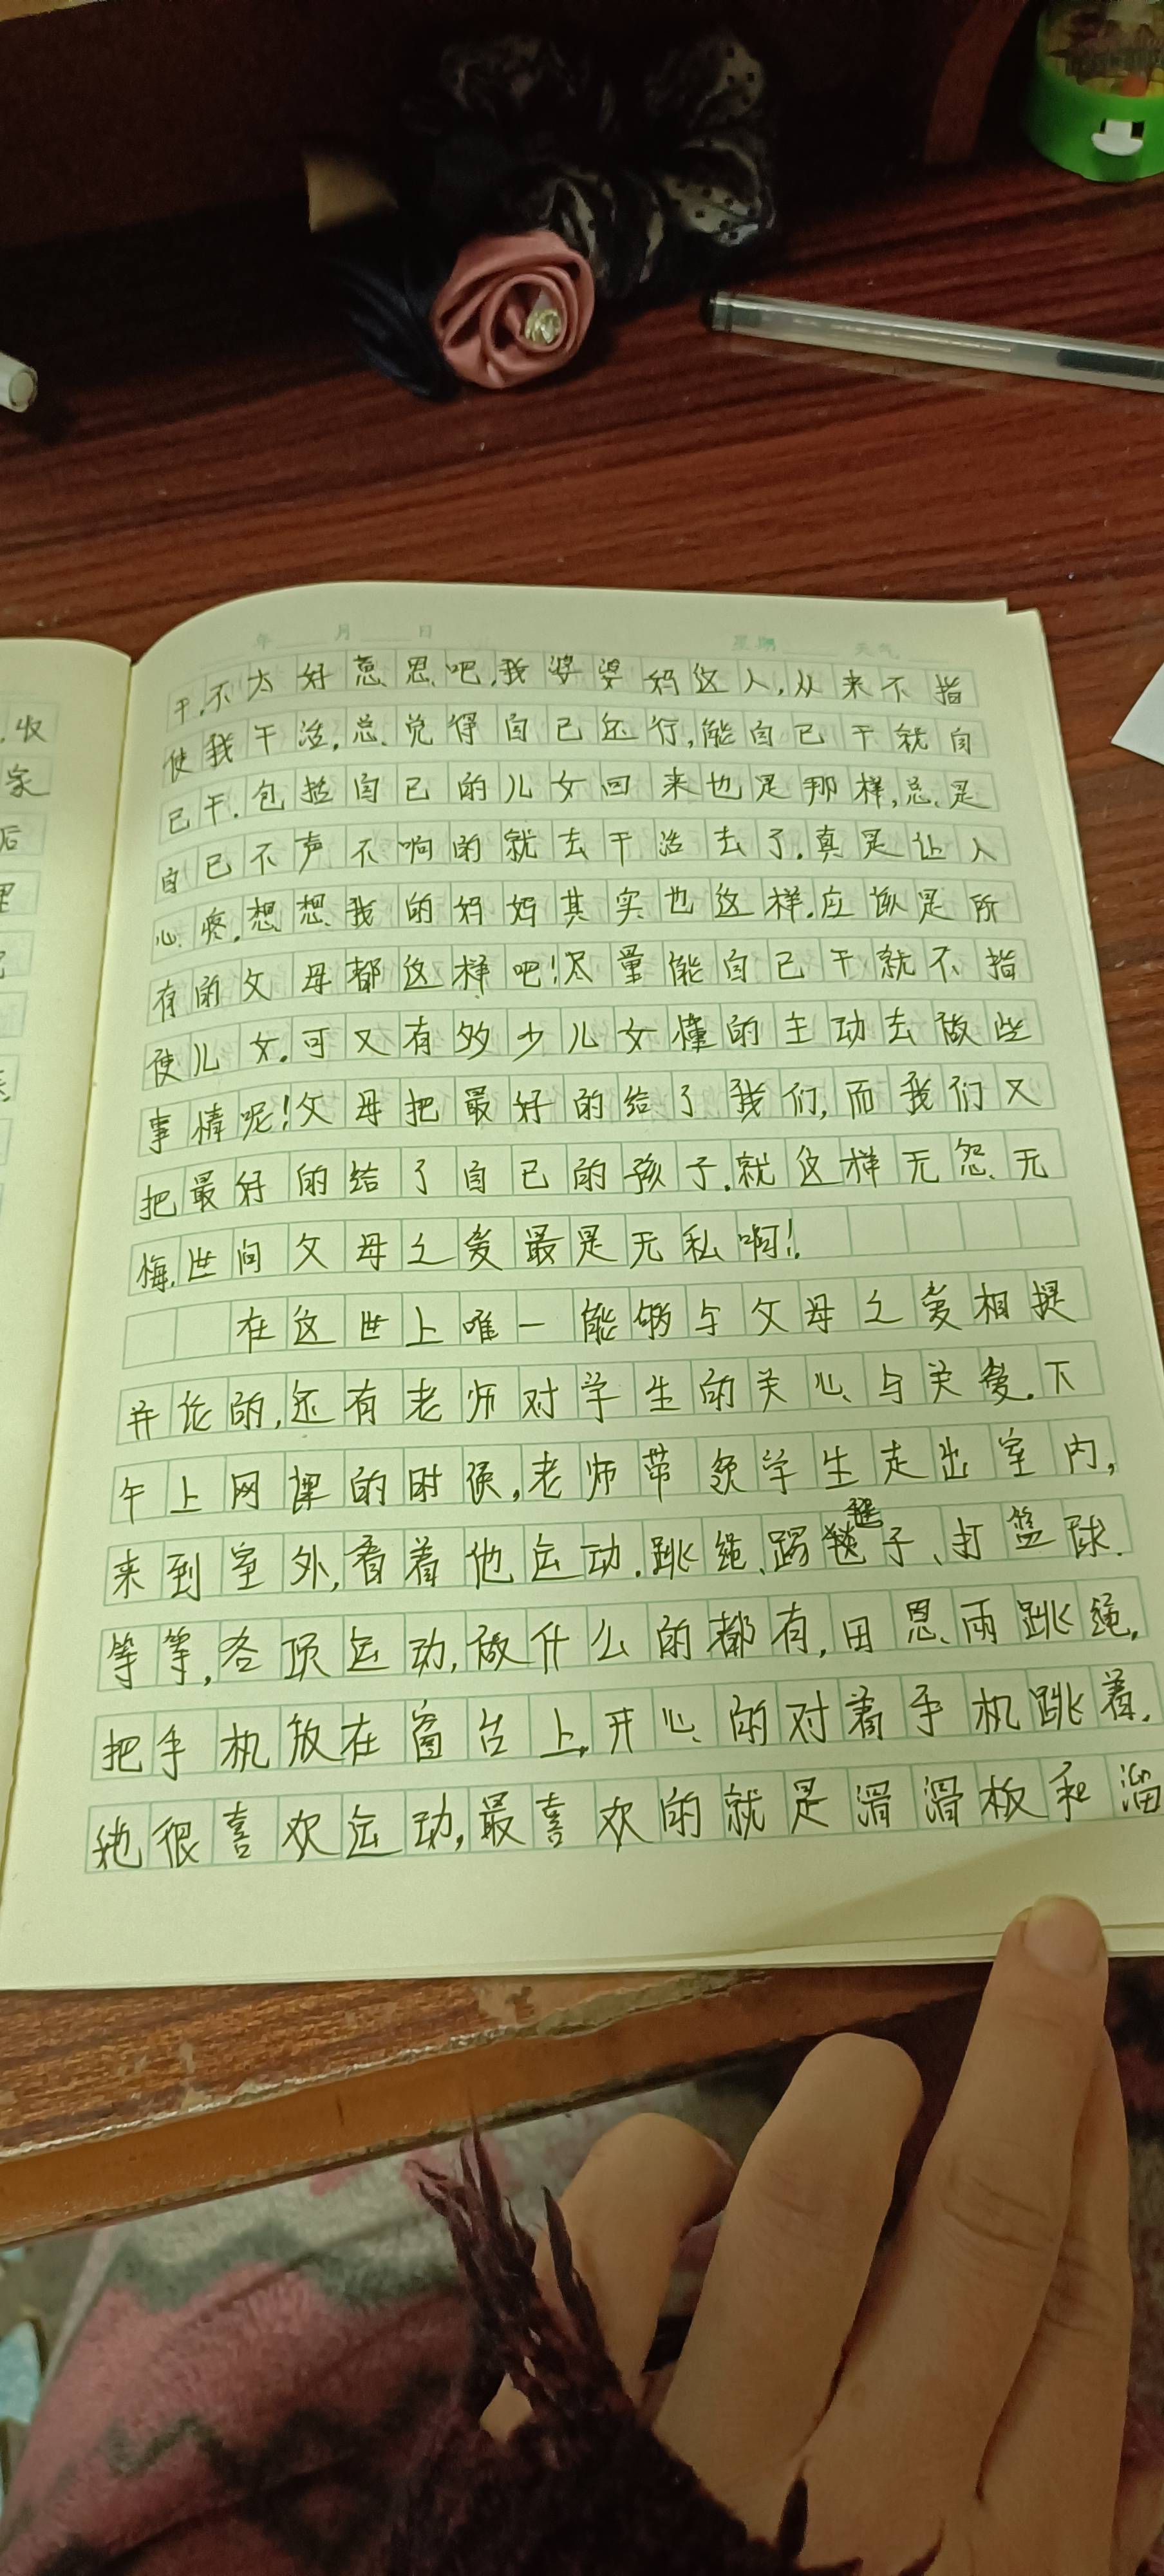 年 月 日 星期 天气
干,不太好意思吧,我婆婆妈这人,从来不指
使我干活,总觉得自己还行,能自己干就自
己干.包括自己的儿女回来也是那样,总是
自己不声不响的就去干活去了.真是让人
心疼.想想我的妈妈其实也这样.应该是所
有的父母都这样吧!尽量能自己干就不指
使儿女.可又有多少儿女懂的主动去做些
事情呢!父母把最好的给了我们,而我们又
把最好的给了自己的孩子.就这样无怨无
悔.世间父母之爱最是无私啊!
在这世上唯一能够与父母之爱相提
并论的,还有老师对学生的关心与关爱.下
午上网课的时候,老师带领学生走出室内,
来到室外,看着他运动.跳绳、踢毽子、打篮球.
等等,各项运动,做什么的都有,田恩雨跳绳,
把手机放在窗台上,开心的对着手机跳着.
她很喜欢运动,最喜欢的就是滑滑板和溜
收
家
后